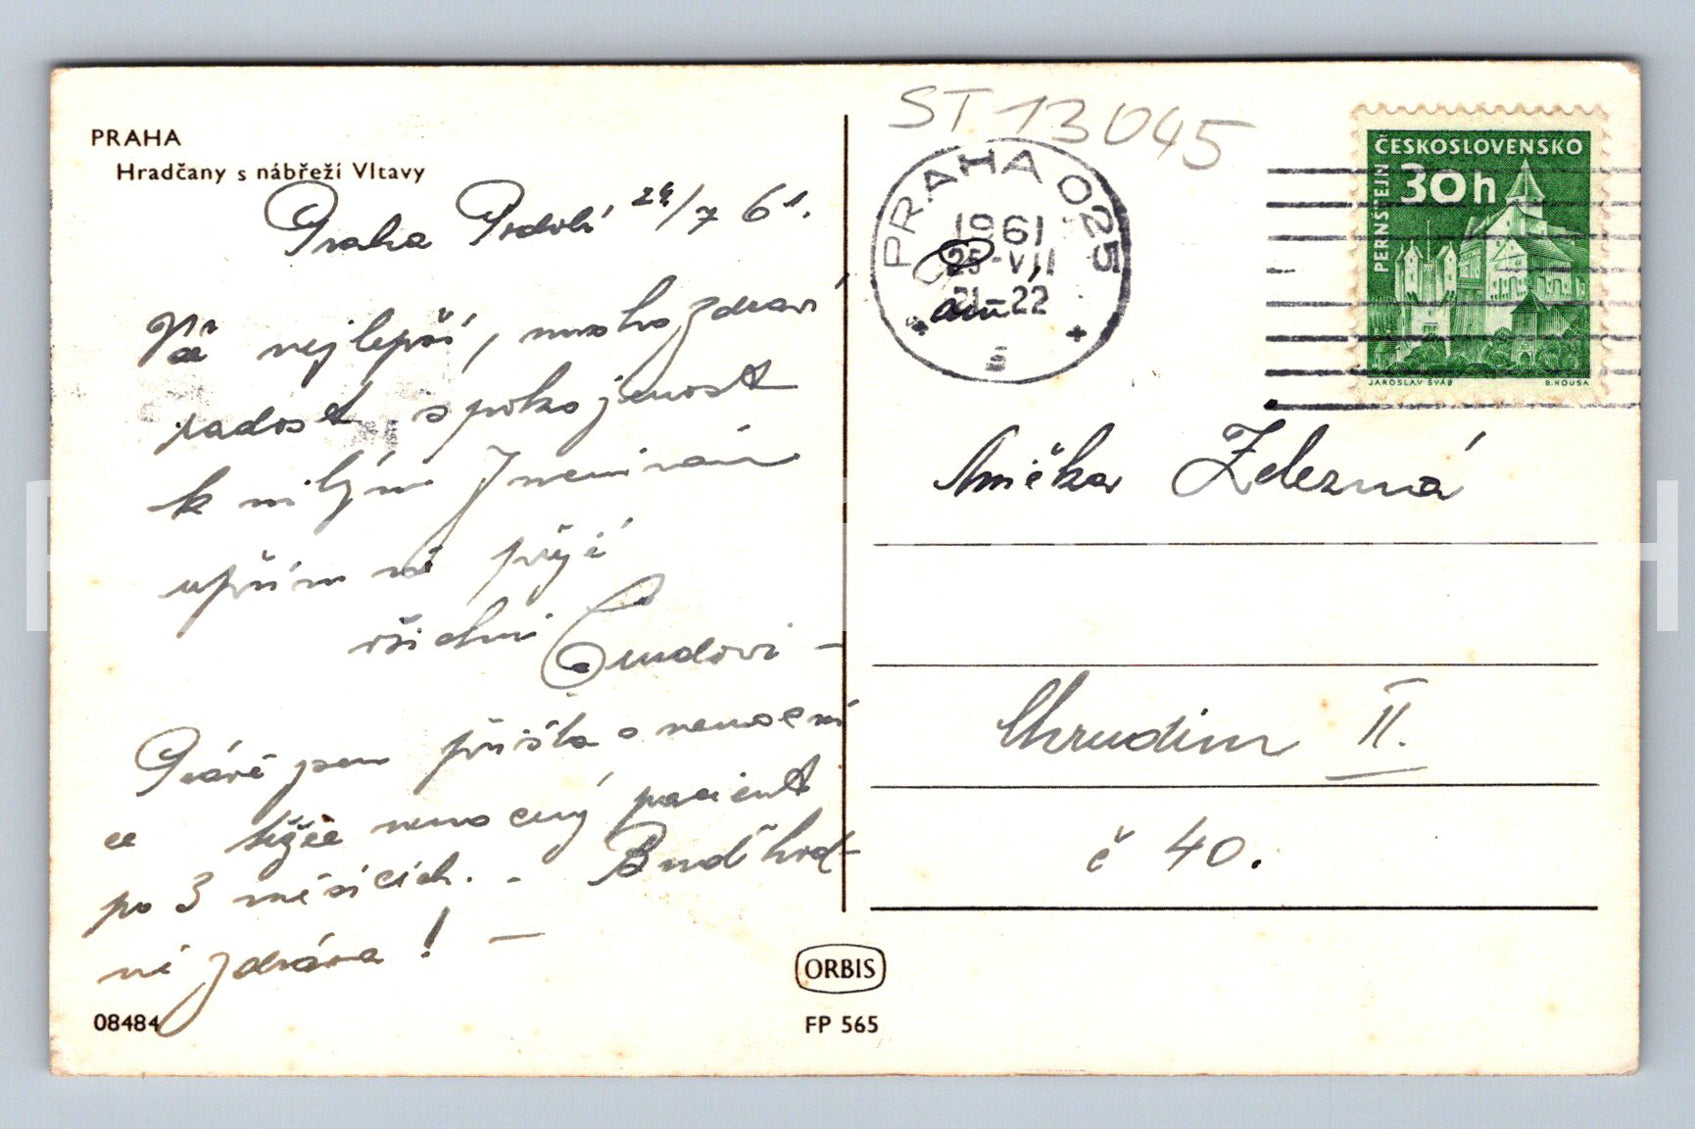 PRAHA
Hradčany s nábřeží Vltavy
Praha Podolí 24/7 61.
Vše nejlepší, mnoho zdraví
radost spokojenost
k milým Jmeninám
upřímně přejí
všichni
Právě jsem přišla z nemocni
ce těžce nemocný pacient
po 3 měsících. - Buď hod-
ně zdráva! -
08484
ORBIS
FP 565
ST 13045
PRAHA 025
1961
25-VII
21-22
ČESKOSLOVENSKO
30h
PERNŠTEJN
JAROSLAV ŠVÁB
B. HOUSA
Anička Železná
Chrudim II.
č 40.